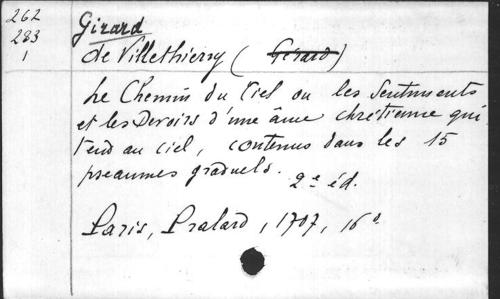 262
283
1
Girard
de Villethierry (Girard)
Le Chemin du Ciel ou les Sentiments
et les Devoirs d'une âme chrétienne qui
tend au ciel, contenus dans les 15
pseaumes graduels. 2e éd.
Paris, Pralard, 1707, 16°